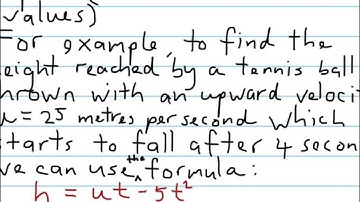 values)
For example, to find the
eight reached by a tennis ball
hrown with an upward velocit
u = 25 metres per second which
starts to fall after 4 secon
ve can use the formula:
h = ut - 5t²